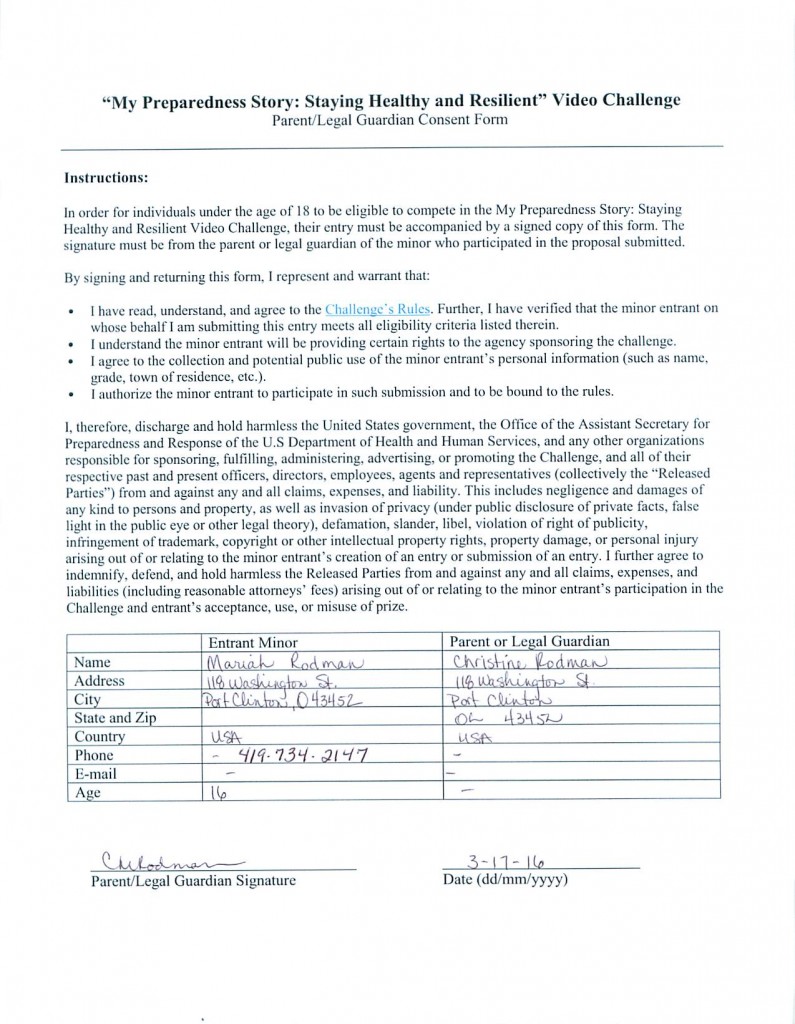 “My Preparedness Story: Staying Healthy and Resilient” Video Challenge
Parent/Legal Guardian Consent Form
Instructions:
In order for individuals under the age of 18 to be eligible to compete in the My Preparedness Story: Staying
Healthy and Resilient Video Challenge, their entry must be accompanied by a signed copy of this form. The
signature must be from the parent or legal guardian of the minor who participated in the proposal submitted.
By signing and returning this form, I represent and warrant that:
• I have read, understand, and agree to the Challenge’s Rules. Further, I have verified that the minor entrant on
whose behalf I am submitting this entry meets all eligibility criteria listed therein.
• I understand the minor entrant will be providing certain rights to the agency sponsoring the challenge.
• I agree to the collection and potential public use of the minor entrant’s personal information (such as name,
grade, town of residence, etc.).
• I authorize the minor entrant to participate in such submission and to be bound to the rules.
I, therefore, discharge and hold harmless the United States government, the Office of the Assistant Secretary for
Preparedness and Response of the U.S Department of Health and Human Services, and any other organizations
responsible for sponsoring, fulfilling, administering, advertising, or promoting the Challenge, and all of their
respective past and present officers, directors, employees, agents and representatives (collectively the “Released
Parties”) from and against any and all claims, expenses, and liability. This includes negligence and damages of
any kind to persons and property, as well as invasion of privacy (under public disclosure of private facts, false
light in the public eye or other legal theory), defamation, slander, libel, violation of right of publicity,
infringement of trademark, copyright or other intellectual property rights, property damage, or personal injury
arising out of or relating to the minor entrant’s creation of an entry or submission of an entry. I further agree to
indemnify, defend, and hold harmless the Released Parties from and against any and all claims, expenses, and
liabilities (including reasonable attorneys’ fees) arising out of or relating to the minor entrant’s participation in the
Challenge and entrant’s acceptance, use, or misuse of prize.
Entrant Minor Parent or Legal Guardian
Name Mariah Rodman Christine Rodman
Address 118 Washington St. 118 Washington St.
City Port Clinton, O 43452 Port Clinton
State and Zip Oh 43452
Country USA USA
Phone - 419-734-2147 -
E-mail - -
Age 16 -
CMRodman 3-17-16
Parent/Legal Guardian Signature Date (dd/mm/yyyy)